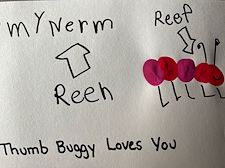 mY Nerm
Reef
Reeh
Thumb Buggy Loves You